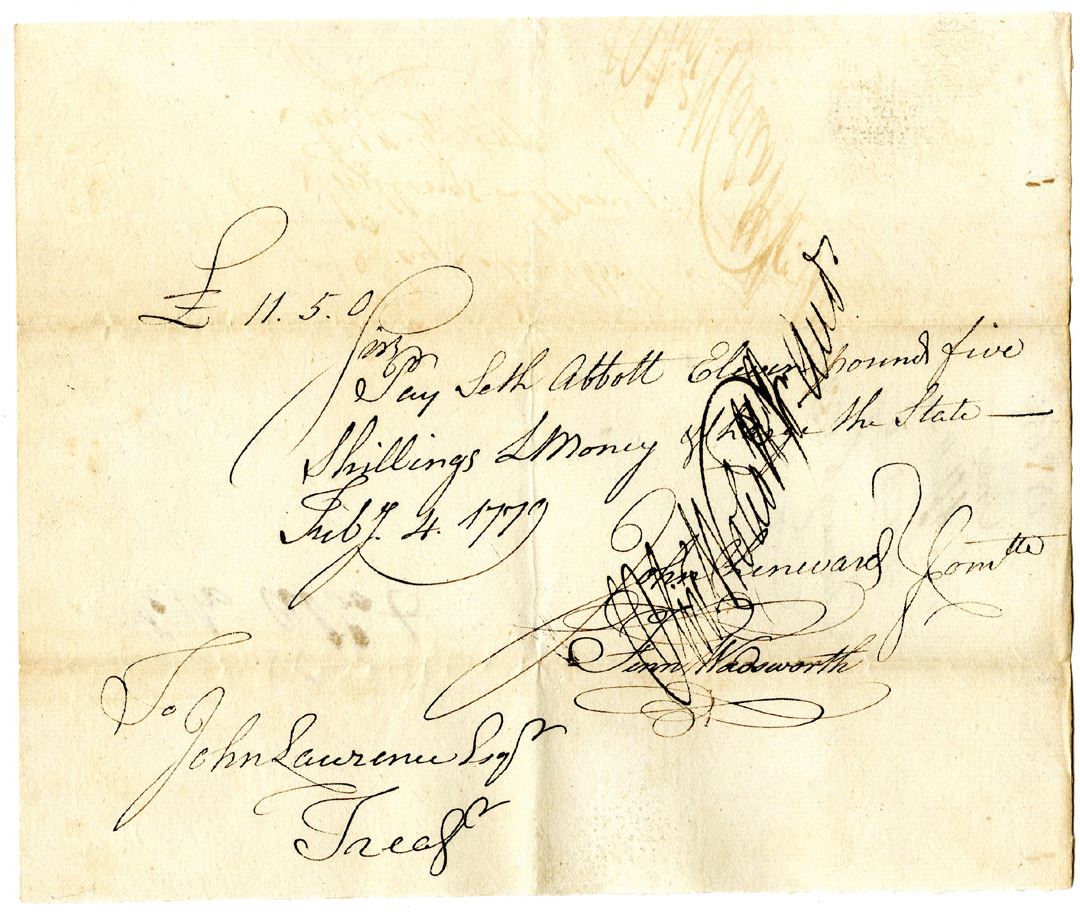 £ 11. 5. 0
Sir
Pay Seth Abbott Eleven pound five
Shillings L Money & Charge the State
Feby. 4. 1779
John Chenward
Comtte
Fenn Wadsworth
To
John Lawrence Esqr
Treasr